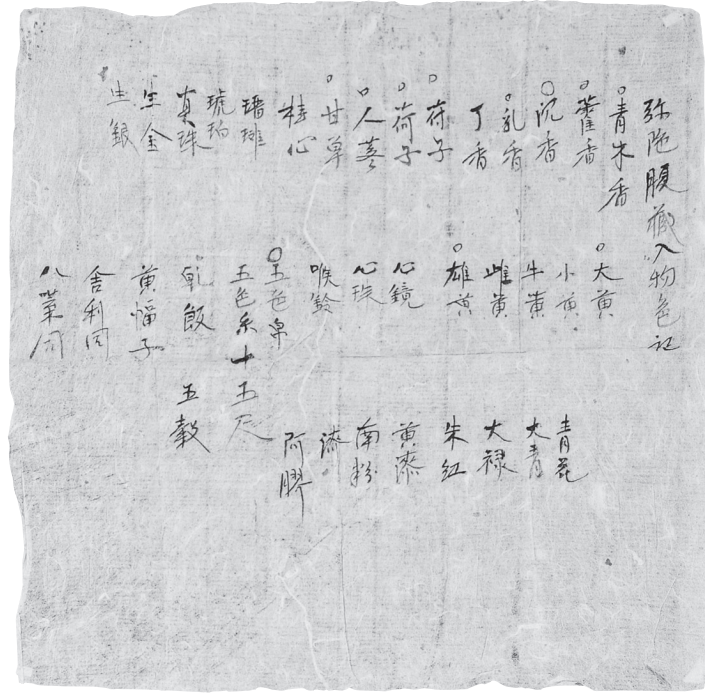 弥陁腹藏入物色記
青木香
藿香
沉香
乳香
丁香
苻子
荷子
人蔘
甘草
桂心
瑠璃
琥珀
真珠
生金
生銀
大黄
小黄
牛黄
雌黄
雄黄
心鏡
心珠
喉鈴
五色帛
五色糸十五尺
乹飯
黄幅子
舎利同
八葉同
青花
大青
大禄
朱紅
黄漆
南粉
漆
阿膠
五穀